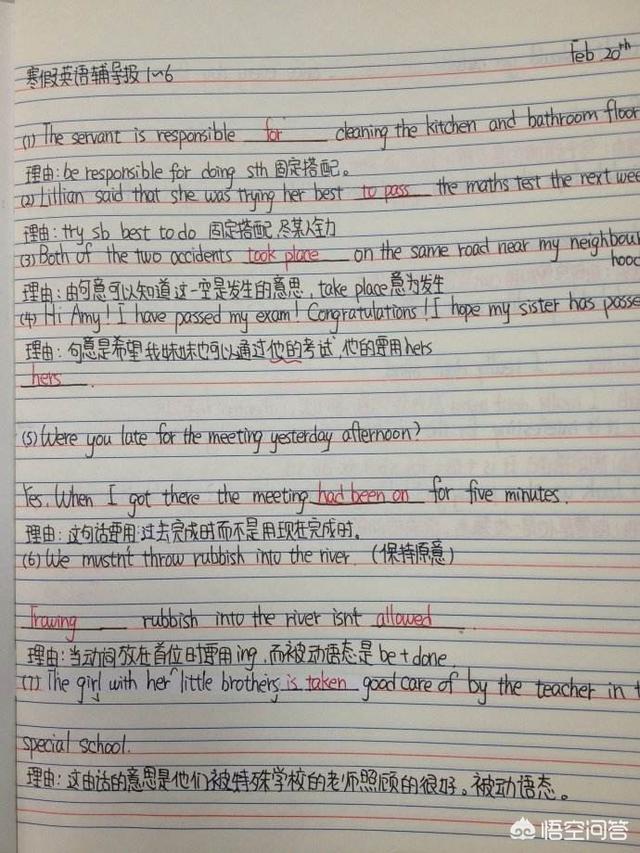 Feb 20th
寒假英语辅导报1~6
(1) The servant is responsible for cleaning the kitchen and bathroom floor
理由:be responsible for doing sth 固定搭配。
(2) Lillian said that she was trying her best to pass the maths test the next wee
理由:try sb best to do 固定搭配,尽某人全力
(3) Both of the two accidents took place on the same road near my neighbour
hood
理由:由句意可以知道这一空是发生的意思,take place意为发生
(4) Hi Amy! I have passed my exam! Congratulations! I hope my sister has passe
理由:句意是希望我妹妹也可以通过他的考试,他的要用hers
hers.
(5) Were you late for the meeting yesterday afternoon?
Yes. When I got there the meeting had been on for five minutes.
理由:这句话要用过去完成时而不是用现在完成时。
(6) We mustn't throw rubbish into the river. (保持原意)
Trowing rubbish into the river isn't allowed
理由:当动词放在首位时要用ing,而被动语态是be+done.
(7) The girl with her little brothers is taken good care of by the teacher in t
special school.
理由:这句话的意思是他们被特殊学校的老师照顾的很好。被动语态。
悟空问答